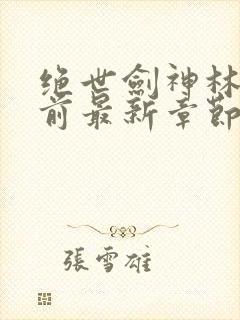 绝世劍神林
前最新章節
張雪雄